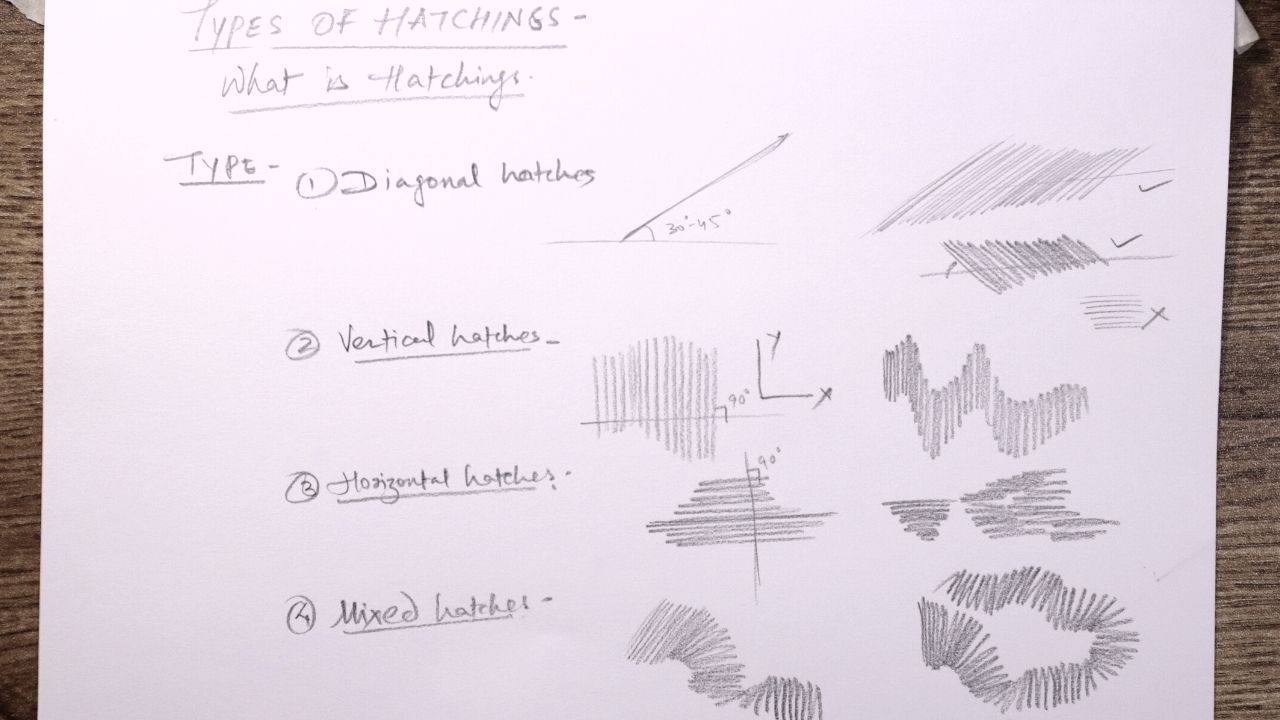 TYPES OF HATCHINGS -
What is Hatchings.
TYPE - ① Diagonal hatches
30°-45°
② Vertical hatches -
Y
X
90°
③ Horizontal hatches -
90°
④ Mixed hatches -